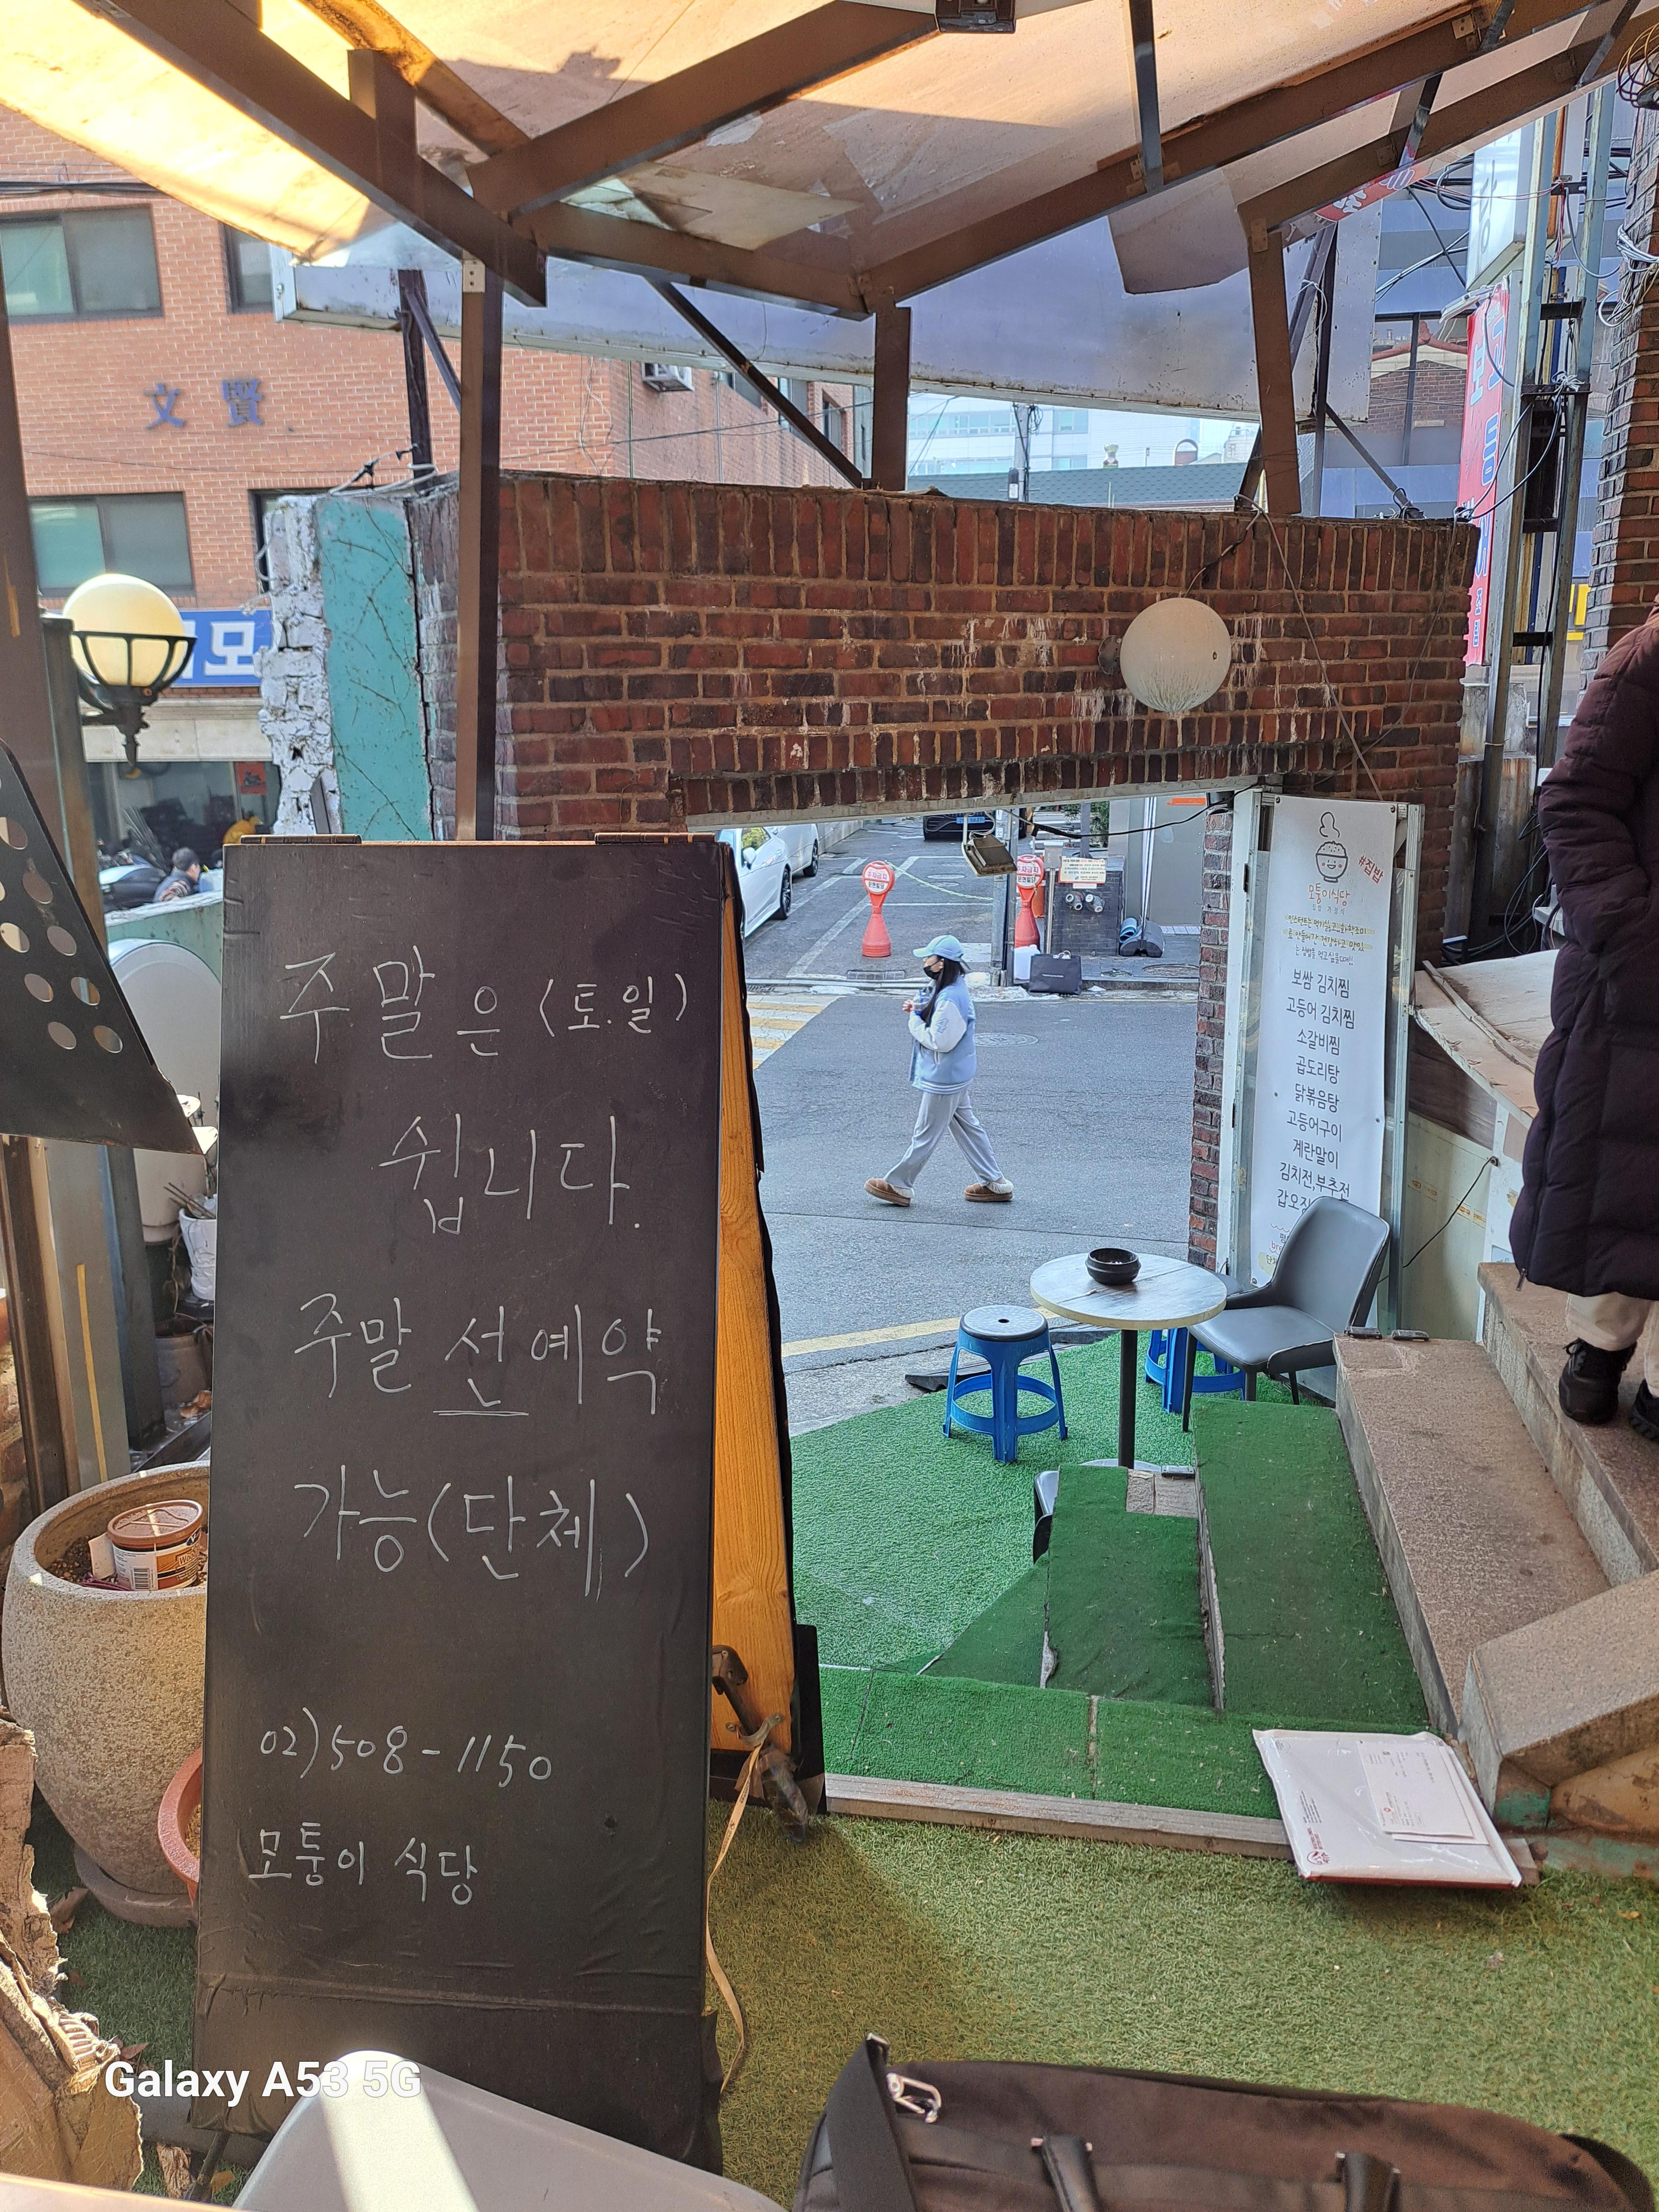 文賢
모
주말은 (토.일)
쉽니다.
주말 선예약
가능(단체)
02)508-1150
모퉁이 식당
#집밥
모퉁이식당
보쌈 김치찜
고등어 김치찜
소갈비찜
곱도리탕
닭볶음탕
고등어구이
계란말이
김치전,부추전
갑오징
Galaxy A53 5G